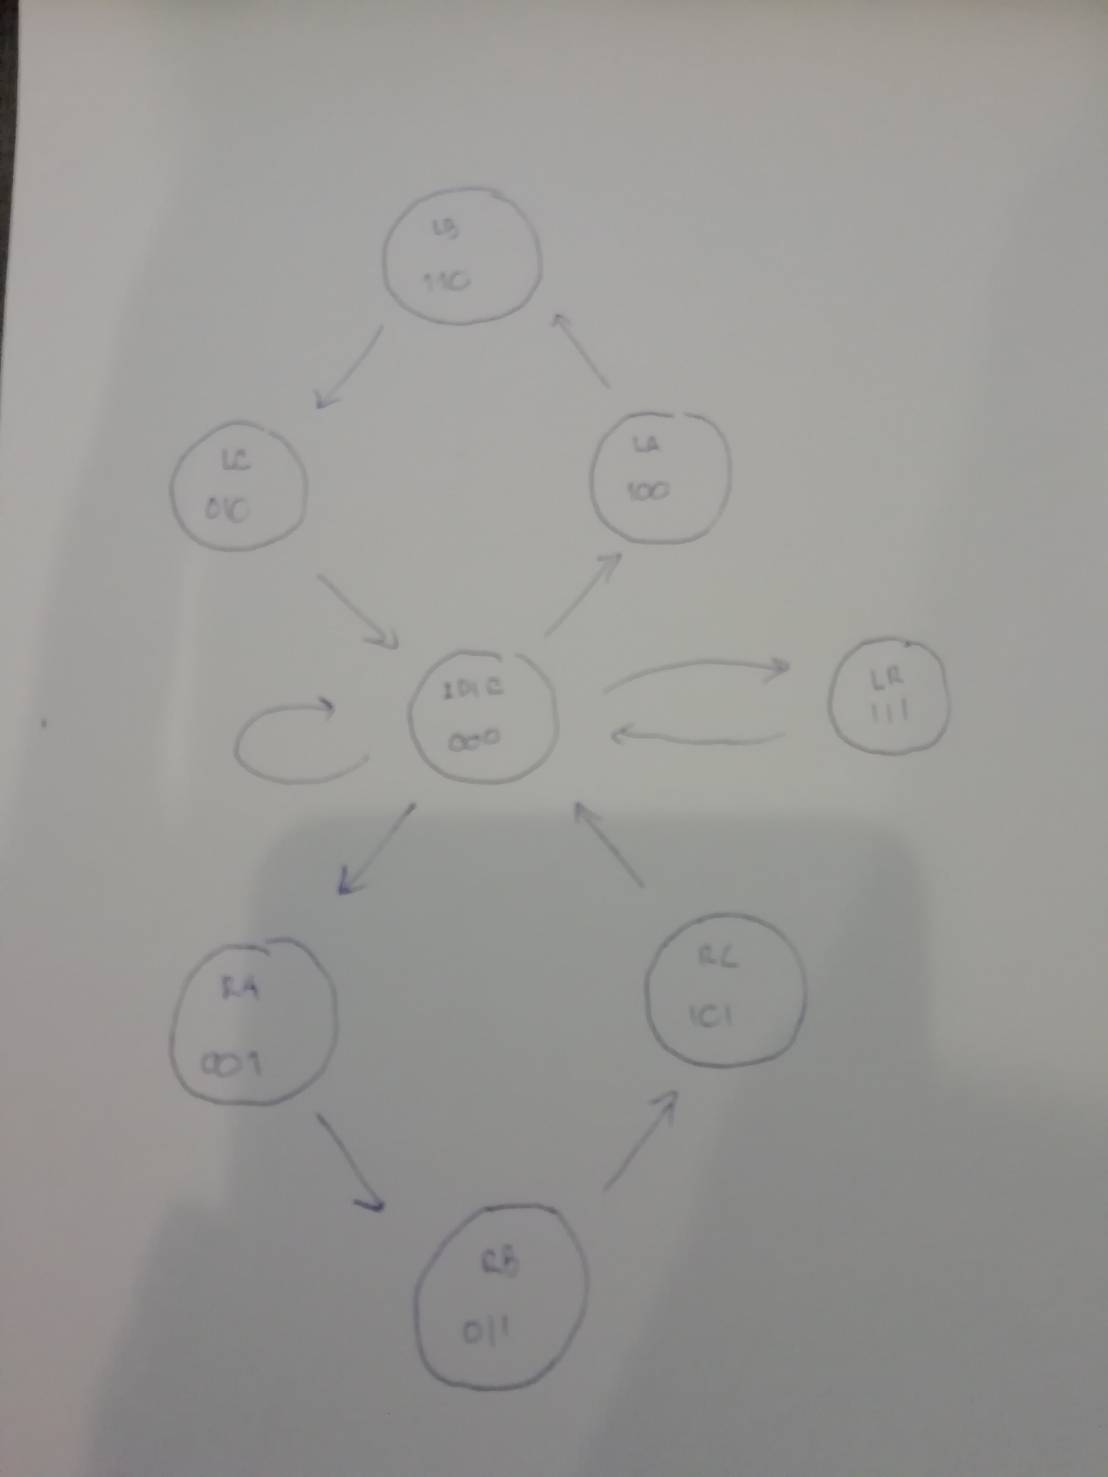 LB
110
LC
010
LA
100
IDLE
000
LR
111
RA
001
RC
101
RB
011